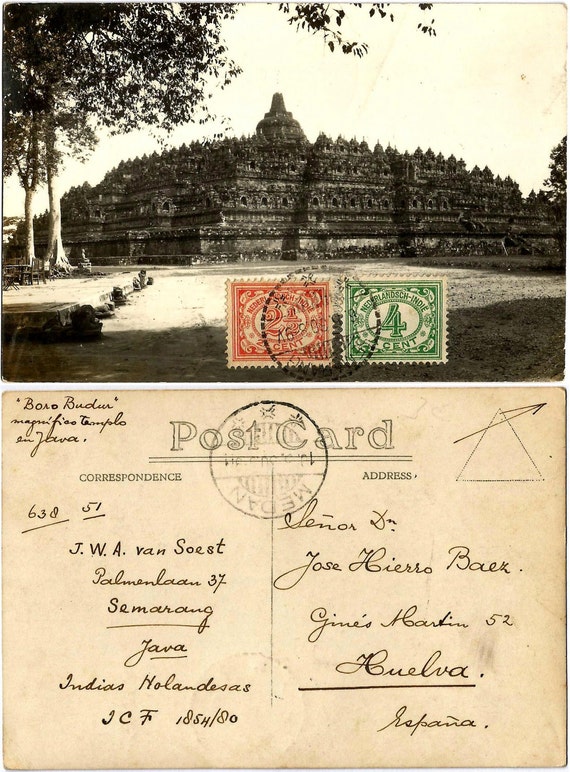 2½
CENT
NEDERLANDSCH-INDIË
4
CENT
"Boro Budur"
magnífico Templo
en Java.
Post Card
CORRESPONDENCE
ADDRESS.
MEDAN
638 51
J. W. A. van Soest
Palmenlaan 37
Semarang
Java
Indias Holandesas
I C F 1854/80
Señor Dn
Jose Hierro Baez.
Ginés Martin 52
Huelva.
España.